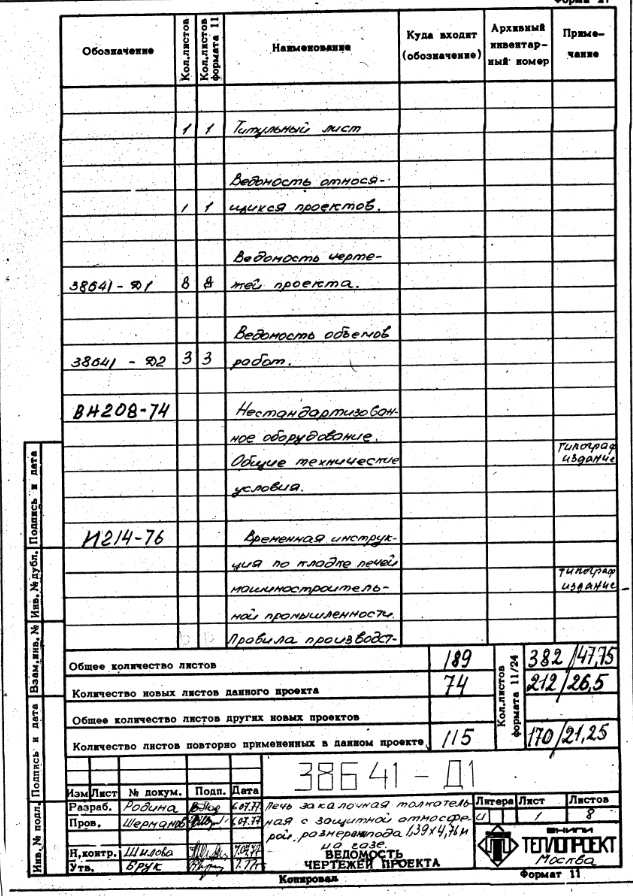 Форма 27
Обозначение Кол.листов Кол.листов формата 11 Наименование Куда входит (обозначение) Архивный инвентар-ный номер Приме-чание
1 1 Титульный лист
Ведомость относя-
1 1 щихся проектов.
Ведомость черте-
38641 - Д1 8 8 жей проекта.
Ведомость объемов
38641 - Д2 3 3 работ.
ВН208-74 Нестандартизован-
ное оборудование.
Общие технические типограф издание
условия.
И214-76 Временная инструк-
ция по кладке печей
машиностроитель- типограф издание
ной промышленности.
Правила производст-
Общее количество листов 189 Кол.листов формата 11/24 382/47,75
Количество новых листов данного проекта 74 212/26,5
Общее количество листов других новых проектов
Количество листов повторно примененных в данном проекте 115 170/21,25
38641 - Д1
Изм Лист № докум. Подп. Дата
Разраб. Родина 6.07.77 Печь закалочная толкатель- Литера Лист Листов
Пров. 6.07.77 ная с защитной атмосфе- и 1 8
рой, размер пода 1,39х4,76м
на газе.
Н.контр. Шилова ВЕДОМОСТЬ
Утв. Брук ЧЕРТЕЖЕЙ ПРОЕКТА
ВНИПИ
ТЕПЛОПРОЕКТ
Москва
Копировал Формат 11
Инв.№ подл. Подпись и дата Взам.инв.№ Инв.№ дубл. Подпись и дата